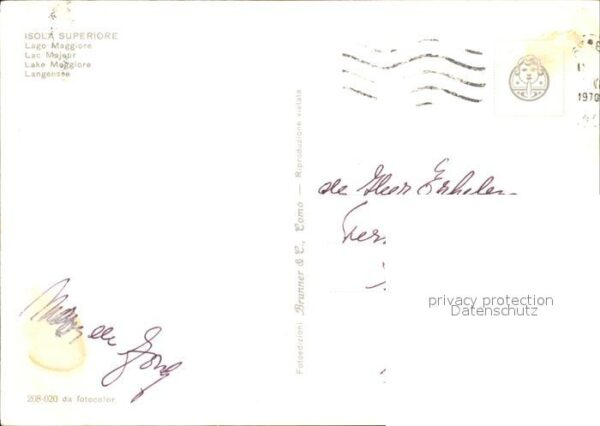 ISOLA SUPERIORE
Lago Maggiore
Lac Majeur
Lake Maggiore
Langensee
1970
Fotoedizioni Brunner & C., Como — Riproduzione vietata
de Heer
privacy protection
Datenschutz
208-020 da fotocolor